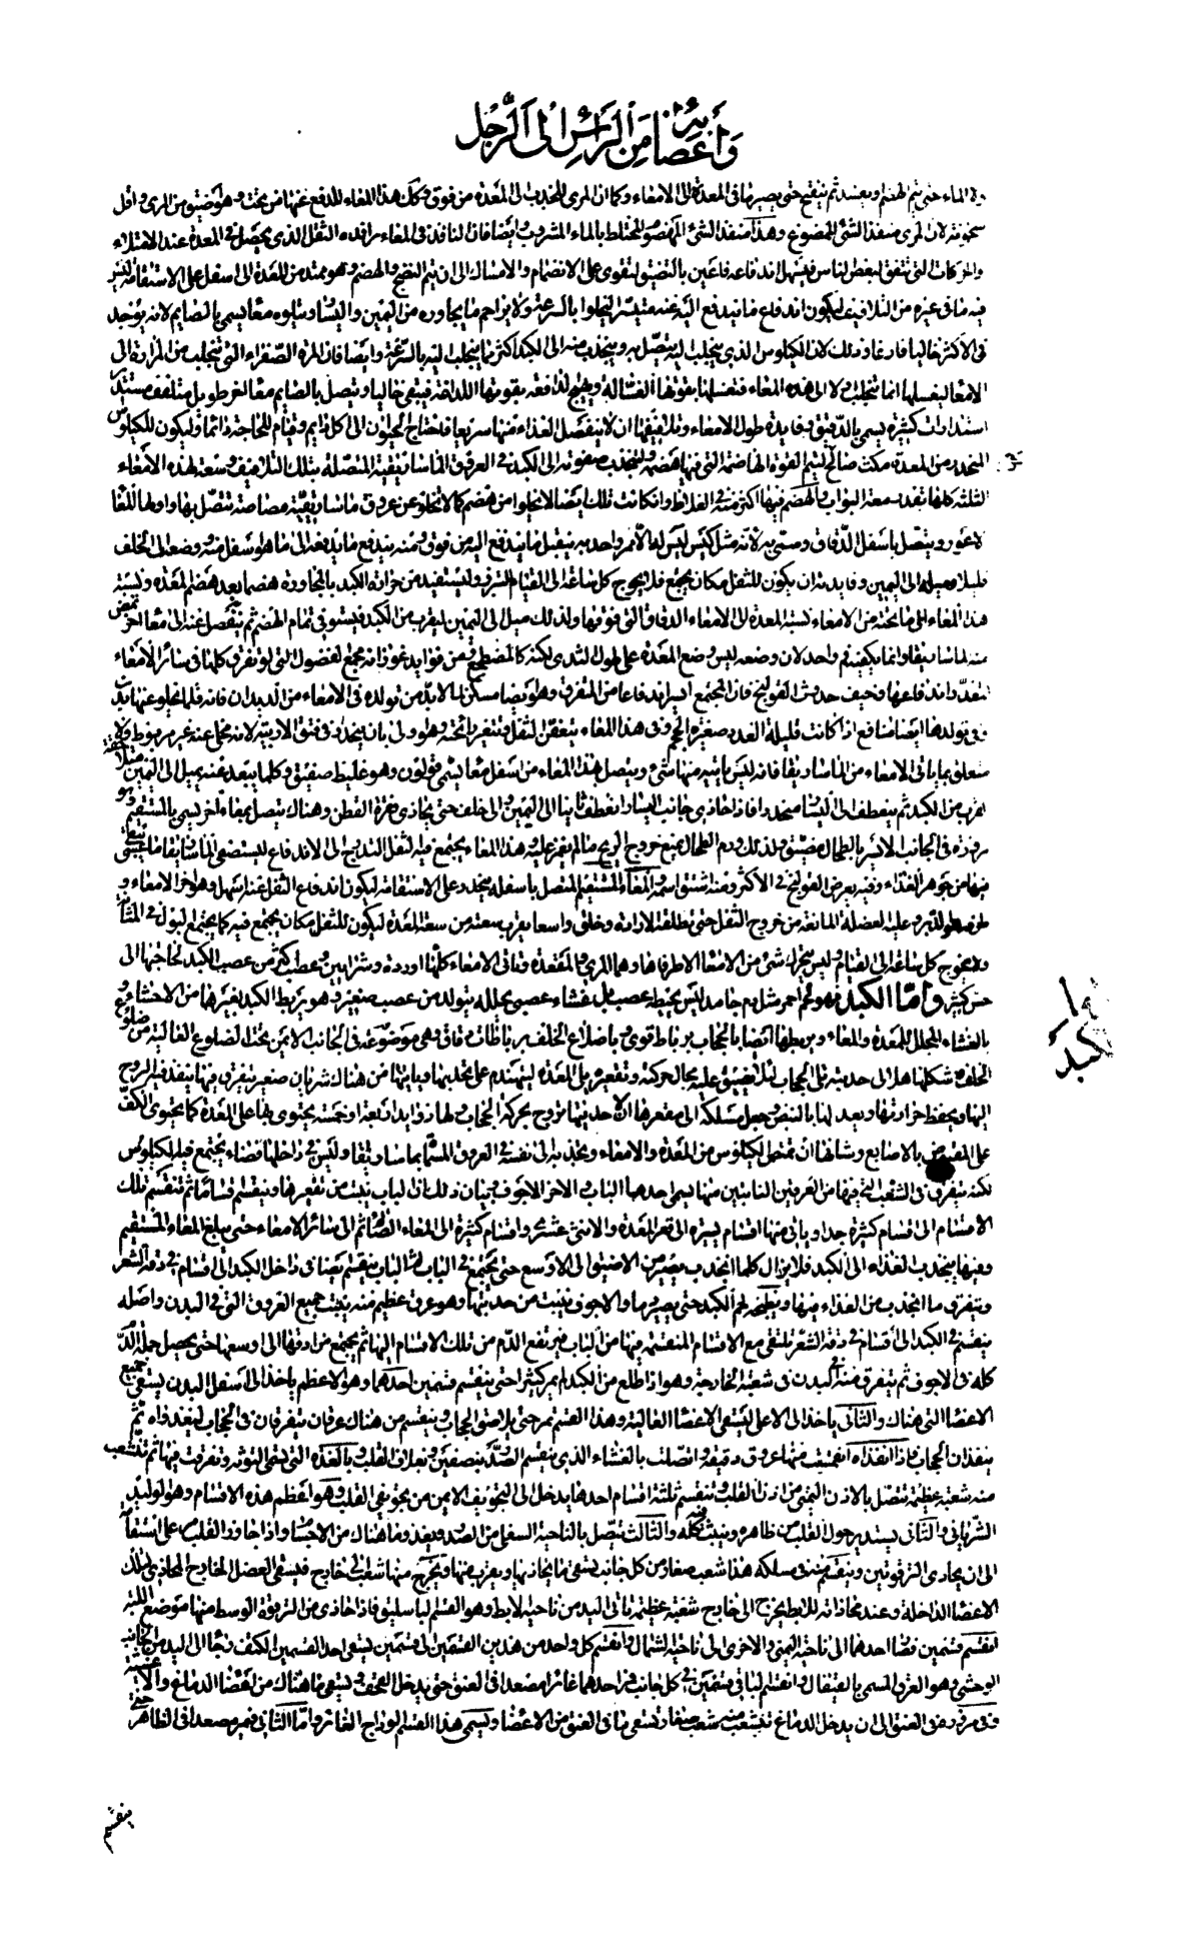 وأعضائه من الرأس إلى الرجل
الماء حتى يتم الهضم ثم ينفتح حتى يصير ما في المعدة الى الامعاء وكما ان المرى للجذب الى المعدة من فوق كذلك هذا المعاء للدفع عنها من تحت وهو أضيق من المرى واقل
سخونة لان المرى منفذ الشئ الممضوغ وهذا منفذ الشئ المهضوم المختلط بالماء المشروب وايضا فان النافذ في المعاء يرافده الثقل الذي يحصل في المعدة عند الامتلاء
والحركات التي تتفق لبعض الناس فيسهل اندفاعه فاعين بالتضيق لتقوى على الانضمام والامساك الى ان يتم النضج والهضم وهو ممتد من المعدة الى اسفل على الاستقامة ليس
فيه ما في غيره من التلافيف ليكون اندفاع ما يندفع اليه عنه متيسرا ليخلوا بالسرعة ولا يزاحم ما يجاوره من اليمين واليسار ويتلوه معا يسمى بالصايم لانه يوجد
في الاكثر خاليا فارغا وذلك لان الكيلوس الذي ينجلب اليه يتصل به وينجذب منه الى الكبد اكثر مما ينجلب اليه بالسرعة وايضا فان المرة الصفراء التي تنجلب من المرارة الى
الامعا ليغسلها انما تنجلب اولا الى هذه المعاء فتغسلها بقوتها الغسالة وتهيج الدافعة بقوتها اللذاعة فيبقى خاليا ويتصل بالصايم معا آخر طويل متلفف مستدير
استدارات كثيرة يسمى بالدقيق وفايدة طول الامعاء وتلافيفها ان لا ينفصل الغذاء منها سريعا فاحتاج الحيوان الى اكل دايم وقيام للحاجة دائما وليكون للكيلوس
المنحدر من المعدة مكث صالح ليتم القوة الهاضمة التي فيها هضمه ولينجذب صفوته الى الكبد في العروق الماساريقية المتصلة بتلك التلافيف وسعة لهذه الامعاء
الثلثة كلها بقدر سعة البواب والهضم فيها اكثر منه في الغلاظ وان كانت تلك ايضا لا تخلوا من هضم كما لا تخلو عن عروق ماساريقية مصاصة تتصل بها واولها المعا
الاعور ويتصل باسفل الدقاق وسمى به لانه مثل كيس ليس له الا فم واحد به يقبل ما يندفع اليه من فوق ومنه يندفع ما يدفعه الى ما هو اسفل منه ووضعه الى الخلف
قليلا وميله الى اليمين وفايدته ان يكون للثفل مكان يجتمع فلا يحوج كل ساعة الى القيام وليستفيد من حرارة الكبد بالمجاورة هضما بعد هضم المعدة ونسبة
هذا المعاء الى ما تحته من الامعاء نسبة المعدة الى الامعاء الدقاق التي فوقها ولذلك ميل الى اليمين ليقرب من الكبد فيستوفي تمام الهضم ثم ينفصل عنه الى معا آخر
وانما يكفيه فم واحد لان وضعه ليس وضع المعدة على طول البدن لكنه كالمضطجع ومن فوايد عوره انه مجمع لفضول التي لو تفرق كلها في سائر الامعاء
اندفاعها وخيف حدوث القولنج فان المجتمع ايسر اندفاعا من المتفرق وهو ايضا مسكن لما لا بد من تولده في الامعاء من الديدان فانه قلما يخلو عنها بدن
وفي تولدها ايضا منافع اذا كانت قليلة العدد صغيرة الحجم وفي هذا المعاء يتعفن الثفل ويتغير رائحته وهو اولى بان ينحدر في فتق الاربية لانه مخلى عنه غير مربوط ولا
متعلق بما ياتي الامعاء من الماساريقا فانه ليس ياتيه منها شئ ويتصل بهذا المعاء من اسفل معا يسمى قولون وهو غليظ صفيق وكلما يبعد عنه يميل الى اليمين
ليقرب من الكبد ثم ينعطف الى اليسار منحدرا فاذا حاذى جانب اليسار انعطف ثانيا الى اليمين والى خلف حتى يحاذى فقرة القطن وهناك يتصل بمعاء آخر يسمى بالمستقيم وهو
في الجانب الايسر بالطحال يضيق ولذلك ورم الطحال يمنع خروج الريح ما لم يغمز عليه هذا المعاء يجتمع فيه الثفل ليتدرج الى الاندفاع ليستصفى الماساريقا
فيها من جوهر الغذاء وفيه يعرض القولنج في الاكثر ومنه اشتق اسمه والمعاء المستقيم المتصل باسفله ينحدر على الاستقامة ليكون اندفاع الثفل عنه اسهل وهو آخر الامعاء
وطرفه هو الدبر وعليه العضلة المانعة من خروج الثفل حتى تطلقه الارادة وخلق واسعا يقرب سعته من سعة المعدة ليكون للثفل مكان يجتمع فيه كما يجتمع البول في المثانة
ولا يحوج كل ساعة الى القيام وليس يتحرك شئ من الامعا الا طرفاها وهما المرى والمقعدة وتاتي الامعاء كلها اوردة وشرايين وعصب اكثر من عصب الكبد لحاجتها الى
حس كثير واما الكبد فهو لحم احمر مثل دم جامد ليس يحيطه عصب بل غشاء عصبي يجلله يتولد من عصب صغير وهو يربط الكبد بغيرها من الاحشاء
بالغشاء المجلل للمعدة والمعاء ويربطها ايضا بالحجاب برباط قوي وباضلاع الخلف برباطات دقاق وهي موضوعة في الجانب الايمن تحت الضلوع العالية من ضلوع
الخلف شكلها هلالي حدبته تلى الحجاب لئلا يضيق عليه مجال حركته وتقعيره يلى المعدة ليتهندم على تحدبها وياتيها من هناك شريان صغير يتفرق فيها ينفذ فيه الروح
اليها ويحفظ حرارتها ويعدلها بالنبض وجعل مسلكه الى مقعرها لان حدبتها تروح بحركة الحجاب ولها زوايد اربعة او خمسة يحتوى بها على المعدة كما يحتوى الكف
على المقبوض بالاصابع وشانها ان تمتص الكيلوس من المعدة والامعاء وتجذبه الى نفسه في العروق المسماة بماساريقا وليس في داخلها فضاء يجتمع فيه الكيلوس
لكنه يتفرق في الشعب التي فيها من العرقين النابتين منها يسمى احدهما الباب والاخر الاجوف وبيان ذلك ان الباب ينبت من تقعيرها وينقسم اقساما ثم تنقسم تلك
الاقسام الى اقسام كثيرة جدا وياتي منها اقسام يسيرة الى قعر المعدة والاثنى عشرى واقسام كثيرة الى المعاء الصائم ثم الى سائر الامعاء حتى يبلغ المعاء المستقيم
وفيها ينجذب الغذاء الى الكبد فلا يزال كلما انجذب يصير من الاضيق الى الاوسع حتى يجتمع في الباب ثم الباب ينقسم ايضا في داخل الكبد الى اقسام في دقة الشعر
ويتفرق ما انجذب من الغذاء فيها ويطبخه لحم الكبد حتى يصير دما والاجوف ينبت من حدبتها وهو عرق عظيم منه ينبت جميع العروق التي في البدن واصله
ينقسم في الكبد الى اقسام في دقة الشعر تلتقى مع الاقسام المنقسمة فيها من الباب فيرتفع الدم من تلك الاقسام اليها ثم يجتمع من ادقها الى اوسعها حتى يحصل جملة الدم
كله في الاجوف ثم يتفرق منه في البدن في شعبه الخارجة وهو اذا طلع من الكبد لم يمر كثيرا حتى ينقسم قسمين احدهما وهو الاعظم ياخذ الى اسفل البدن يسقى جميع
الاعضا التي هناك والثاني ياخذ الى الاعلى ليسقى الاعضا العالية وهذا القسم تمر حتى يلاصق الحجاب وينقسم من هناك عرقان يتفرقان في الحجاب ليغذواه ثم
ينفذان الحجاب فاذا انفذاه انشعبت منهما عروق دقيقة واتصلت بالغشاء الذي ينقسم الصدر بنصفين وبغلاف القلب وبالغدة التي تسمى التوثة وتفرقت فيها ثم تنشعب
منه شعبة عظيمة تتصل بالاذن اليمنى من اذنى القلب وتنقسم ثلثة اقسام احدها يدخل الى التجويف الايمن من تجويفى القلب وهو اعظم هذه الاقسام وهو الوريد
الشرياني والثاني يستدير حول القلب من ظاهره وينبث فيه كله والثالث يتصل بالناحية السفلى من الصدر ويغذو ما هناك من الاجسام واذا جاوز القلب مر على استقامة
الى ان يحاذى الترقوتين وينقسم منه في مسلكه هذا شعب صغار من كل جانب يسقى ما يحاذيها ويقرب منها ويخرج منها شعب الى خارج فيسقى العضل الخارج المحاذي لتلك
الاعضا الداخلة وعند محاذاته للابط يخرج الى خارج شعبة عظيمة تاتي اليد من ناحية الابط وهو القسم الباسليق فاذا حاذى من الترقوة الوسط منها موضع اللبة
انقسم قسمين فصار احدهما الى ناحية اليمنى والاخرى الى ناحية الشمال وانقسم كل واحد من هذين القسمين الى قسمين يسقى احد القسمين الكتف وجاء الى اليد من الجانب
الوحشي وهو العرق المسمى بالقيفال وانقسم الباقى قسمين في كل جانب فمر احدهما غائرا مصعدا في العنق حتى يدخل القحف ويسقى ما هناك من اعضا الدماغ والاغشية
وفي مروره في العنق الى ان يدخل الدماغ تنشعب منه شعب صغار تسقى ما في العنق من الاعضا ويسمى هذا القسم الوداج الغائر واما الثاني فيمر مصعدا في الظاهر حتى
واما
الكبد
ينقسم